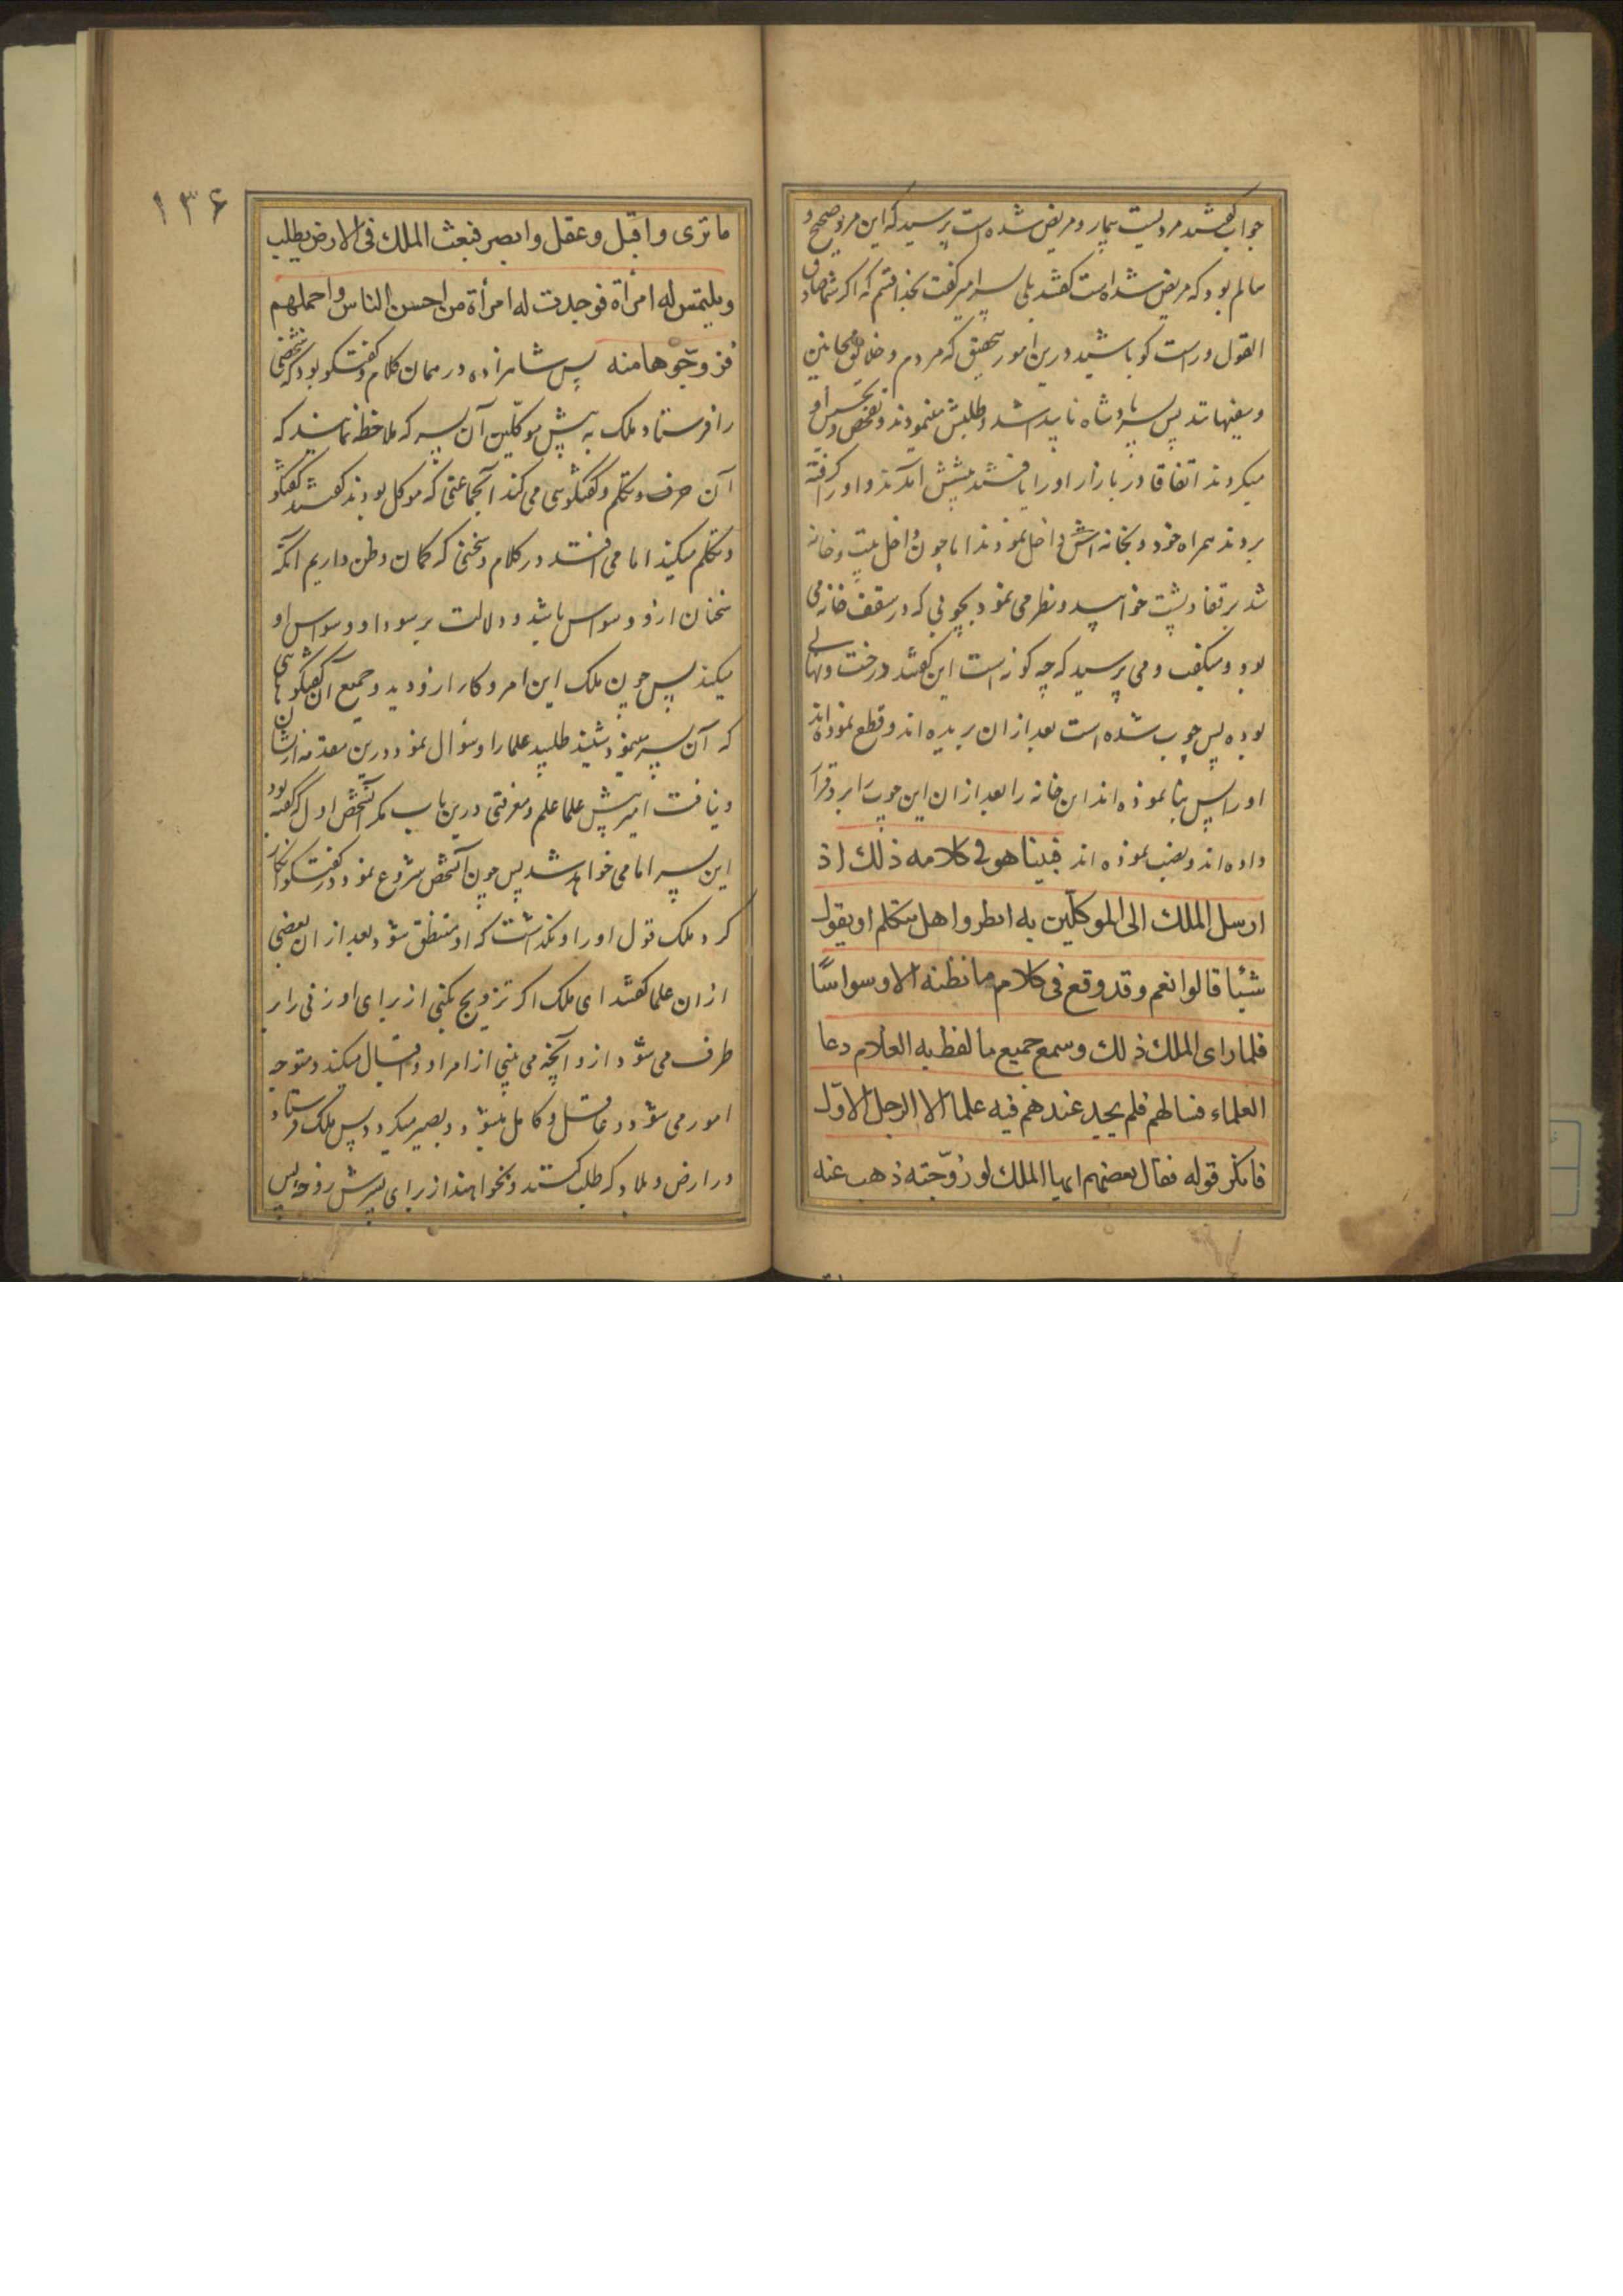 جواب گفتند مردیست بیمار و مریض شده است پرسید که این مرد صحیح و
سالم بود که مریض شده است گفتند بلی پسر امیر گفت بخدا قسم که اگر شما صادق
القول و راست گو باشید درین امور بتحقیق که مردم و خلایق مجانین
و سفیهانند پس پسر پادشاه ناپیدا شد و طلبش مینمودند و تفحص و تجسس او
میکردند اتفاقا در بازار او را یافتند پیشش آمدند و او را گرفته
بردند همراه خود و بخانه اش داخل نمودند اما چون داخل بیت و خانه
شد بر قفا و پشت خوابید و نظر می نمود بچوبی که در سقف خانه می
بود و میگفت و می پرسید که چه گونه است این گفتند درخت و نهالی
بوده پس چوب شده است بعد از ان بریده اند و قطع نموده اند
او را پس بنا نموده اند این خانه را بعد از ان این چوب را برو قرار
داده اند و نصب نموده اند فبینا هو فی کلامه ذلك اذ
ارسل الملك الی الموکلین به انظروا هل یتکلم او یقول
شیئا قالوا نعم و قد وقع فی کلام ما نظنه الا وسواسًا
فلما رای الملك ذلك وسمع جمیع ما لفظ به الغلام دعا
العلماء فسالهم فلم یجد عندهم فیه علما الا الرجل الاوّل
فانکر قوله فقال بعضهم ایها الملك لو زوّجته ذهب عنه
۱۳۶
ما تری و اقبل و عقل و ابصر فبعث الملك فی الارض یطلب
و یلتمس له امرأة فوجدت له امرأة من احسن الناس و اجملهم
فزوّجوها منه پس شاهزاده در همان کلام و گفتگو بود که شخصی
را فرستاد ملک به پیش موکلین آن پسر که ملاحظه نمایند که
آن حرف و تکلم و گفتگوئی می کند آنجماعتی که موکل بودند گفتند گفتگو
و تکلم میکند اما می افتد در کلام و سخنی که گمان و ظن داریم آنکه
سخنان ازو وسواس باشد و دلالت بر سودا و وسواس او
میکند پس چون ملک این امر و کار ازو دید و جمیع آن گفتگوهائی
که آن پسر مینمود شنید طلبید علما را و سؤال نمود درین مقدمه از ایشان
و نیافت امیر پیش علما علم و معرفتی درین باب مگر آنشخص اول که گفته بود
این پسر امامی خواهد شد پس چون آنشخص شروع نمود در گفتگو انکار
کرد ملک قول او را و نگذاشت که او متنطق شود بعد از ان بعضی
از ان علما گفتند ای ملک اگر تزویج بکنی از برای او زنی را بر
طرف می شود ازو آنچه می بینی از امر او و اقبال میکند و متوجه
امور می شود و عاقل و کامل میشود و بصیر میگردد پس ملک فرستاد
در ارض و بلاد که طلب کنند و بخواهند از برای پسرش زوجه پس